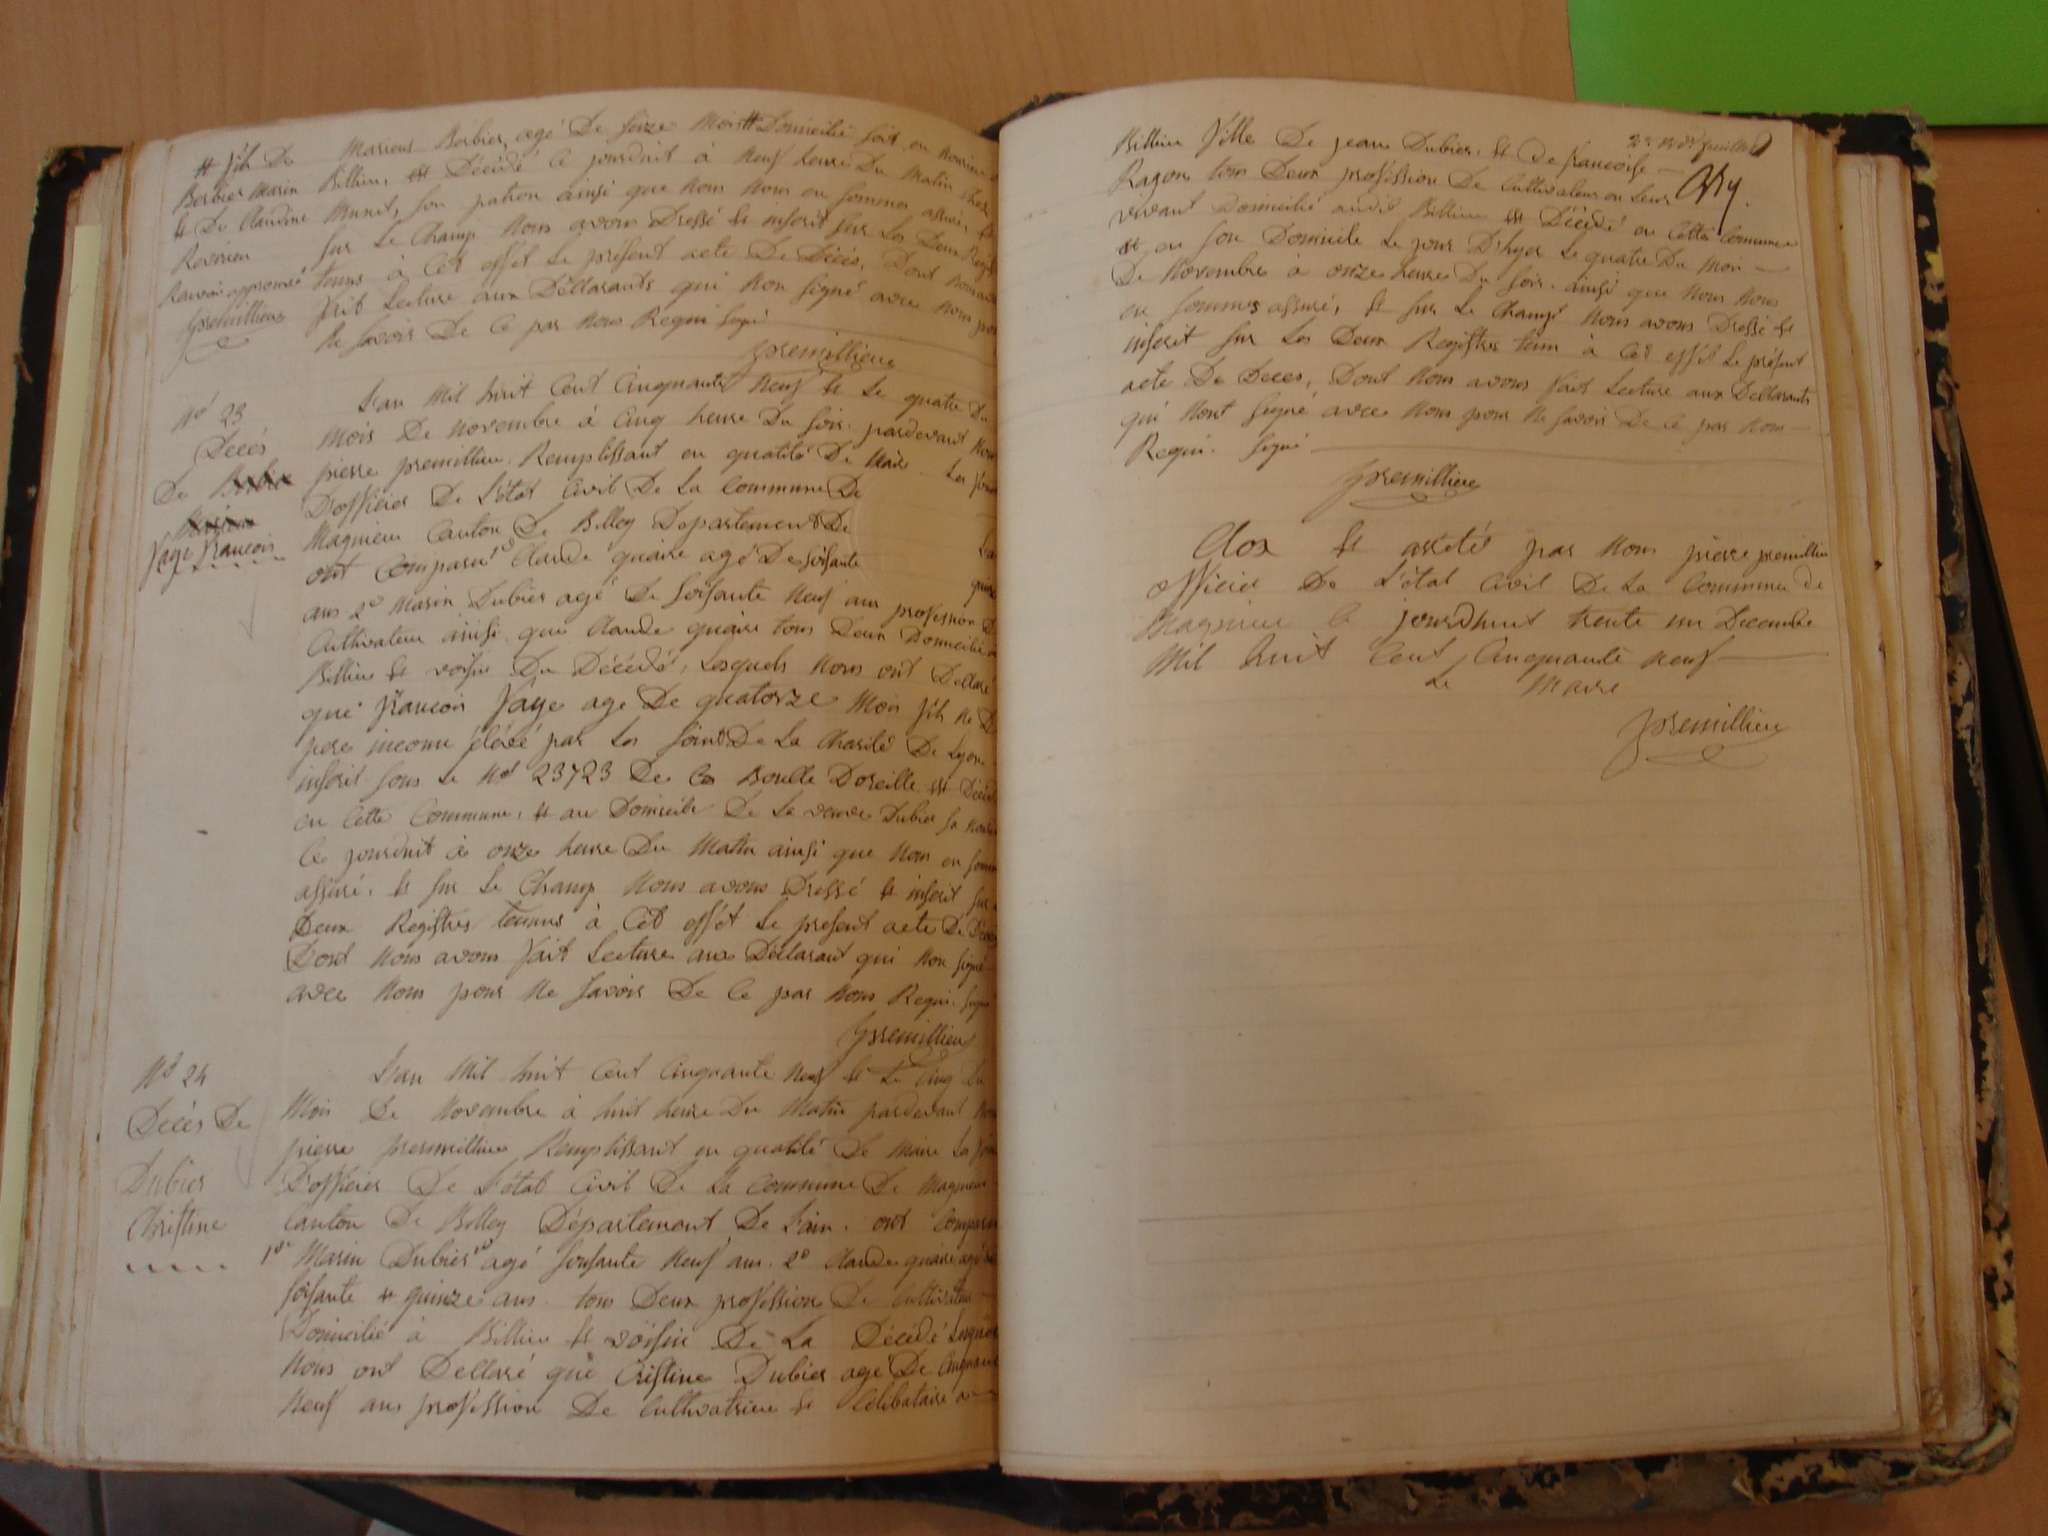 # fils De
Berbier Marin
& De Claudine
Renvoi approuvé
premillieu
Marieus Berbier, agé De seize Mois # Domicilié soit en Nourice a
Billieu, est Décédé ce jourduit à Neuf heure Du Matin chez
Munet, son patron ainsi que Nous Nous en sommes assuré, &
sur Le Champ Nous avons Dressé & inscrit sur Les Deux Regist
tenus à Cet effet Le présent acte De Décès, Dont Nous avons
fait Lecture aux Déllarants qui Non signé avec Nous pour
Ne savoir De Ce par Nous Requi signé
premillieu
No 23
Décés
De
faye françois
Lan Mil huit Cent Cinquante Neuf & Le quatre Du
Mois De Novembre à Cinq heure Du soir. pardevant Nous
pierre premillieu. Remplissant en qualité De Maire Les fon
D'officier De L'état Civil De La Commune De
Magnieu Canton De Belley Departement De
ont Comparu 1o Claude quaire agé De soisante
ans 2o Marin Dubier agé De soisante Neuf ans profession De
Cultivateur ainsi que Claude quaire tous Deux Domicilié a
Billieu & voisin Du Décédé, Lesquels Nous ont Dellaré
que françois faye age De quatorze Mois fils Né De
pere inconnu élévé par Les soins De La Charité De Lyon
inscrit sous Le No 23723 De La Boucle Doreille est Décédé
en Cette Commune, & au Domicile De La veuve Dubier sa Nour
Ce jourduit à onze heure Du Matin ainsi que Nous en somm
assuré. & sur Le Champ Nous avons Dressé & inscrit sur
Deux Registres tenus à Cet effet Le présent acte De Décès
Dont Nous avons fait Lecture aux Déllarant qui Non signé
avec Nous pour Ne savoir De Ce par Nous Requi. signé
premillieu
No 24
Décès De
Dubier
Christine
Lan Mil huit Cent Cinquante Neuf & Le Cinq Du
Mois De Novembre à huit heure Du Matin pardevant Nous
pierre premillieu Remplissant en qualité De Maire Les fon
D'officier De L'état Civil De La Commune De Magnieu
Canton De Belley Département De L'ain. ont Comparu
1o Marin Dubier agé soisante Neuf ans. 2o Claude quaire agé de
soisante & quinze ans. tous Deux profession De Cultivateur
Domicilié à Billieu & voisin De La Décédé Lesquels
Nous ont Dellaré que Cristine Dubier agé De Cinquante
Neuf ans profession De Cultivatrice & Célibataire a
Billieu fille De jean Dubier. & de françoise
Ragon tous Deux profession De Cultivateur en Leur
vivant Domicilié audit Billieu est Décédé en Cette Commune
& en son Domicile Le jour D'hyer Le quatre Du Mois
De Novembre à onze heure Du soir. ainsi que Nous Nous
en sommes assuré, & sur Le Champ Nous avons Dressé &
inscrit sur Les Deux Registres tenu à Cet effét Le présent
acte De Décès, Dont Nous avons fait Lecture aux Déllarants
qui Nont signé avec Nous pour Ne savoir De Ce par Nous
Requi. signé
premillieu
Clos & arrêté par Nous pierre premillieu
officier De L'état Civil De La Commune de
Magnieu Ce jourdhuit trente un Decembre
Mil huit Cent Cinquante Neuf
Le Maire
premillieu